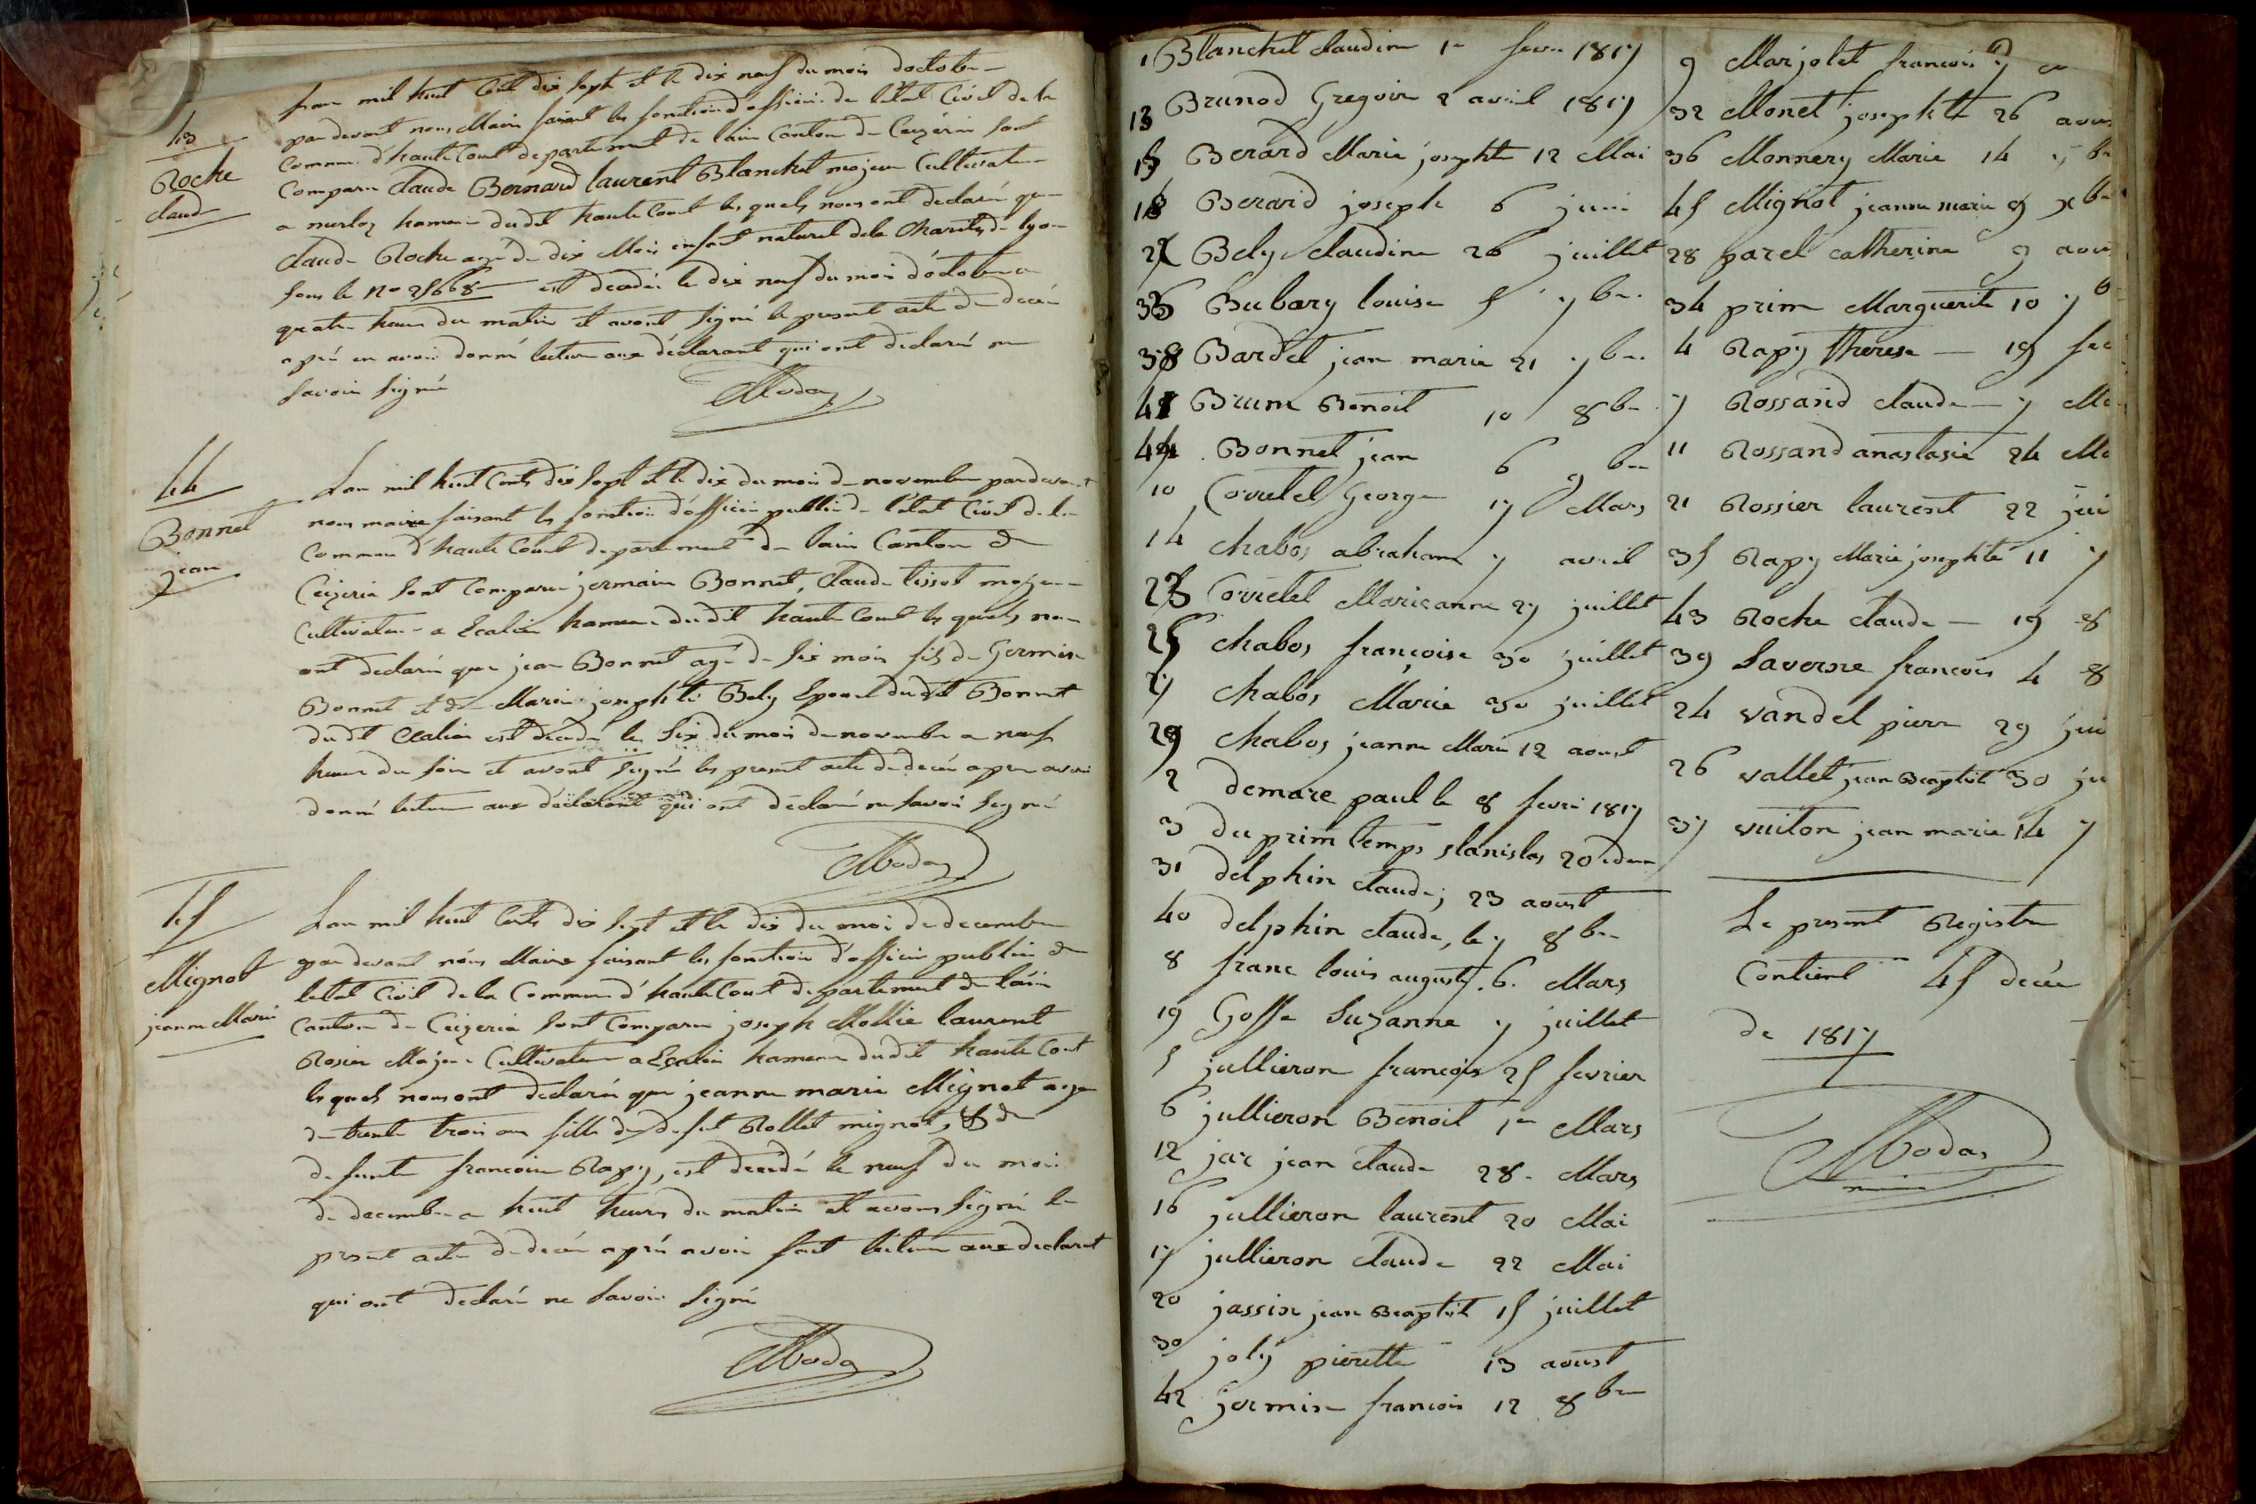 43
Roche
claude
Lan mil huit Cent dix Sept et le dix neuf du mois doctobre
par devant nous Maire faisant les fonction d'officier de l'état Civil de la
Commune d'hautecourt departement de lain Canton de Ceyzeria Sont
Comparu Claude Bernard laurent Blanchet majeur Cultivateur
a murlaz hameau dudit hautecourt les quels nous ont declaré que
Claude Roche agé de dix Mois enfant naturel de la Charité de lyon
Sous le No 25668 est decedé le dix neuf du mois d'octobre a
quatre heure du matin et avont Signé le present acte de decée
aprè en avoir donné lecture aux déclarant qui ont declaré ne
Savoir Signé
44
Bonnet
jean
Lan mil huit Cents dix Sept et le dix du mois de novembre par devant
nous maire faisant les fonction d'officier public de l'état Civil de la
Commune d'haute Court departement de lain Canton de
Ceizeria Sont Comparu jermain Bonnet, Claude tissot majeur
Cultivateur a hameau dudit haute Court les quels nous
ont declaré que jean Bonnet agé de Six mois fils de Germain
Bonnet et de Marie josephte Bely Epouse dudit Bonnet
dudit est decedé le Six du mois de novembre a neuf
heure du Soir et avont Signé les present acte de decée apres avoir
donné lecture aux déclarant qui ont déclaré ne Savoir Signé
45
Mignot
jeanne Marie
Lan mil huit Cents dix Sept et le dix du moi de decembre
par devant nous Maire faisant les fonction d'officier public de
letat Civil de la Commune d'haute Court departement de lain
Canton de Ceizeria Sont Comparu joseph Mollie laurent
Rosier Majeur Cultivateur a hameau dudit haute Court
les quels nous ont declaré que jeanne marie Mignot agé
de trente trois ans fille de defut Rollet mignot, & de
defunte francoise Rapy, est decedé le neuf du moi
de decembre a huit heures du matin et avons Signé le
present acte de decée aprè avoir fait lecture aux declarant
qui ont declaré ne Savoir Signé
1 Blanchet claudine 1er fevrier 1817
13 Brunod Gregoire 2 avril 1817
15 Berard Marie josephte 12 Mai
18 Berard joseph 6 juin
22 Bely claudine 26 juillet
33 Bubary louise 5 7bre
38 Bardet jean marie 21 7bre
41 Brum Benoit 10 8bre
44 Bonnet jean 6 9bre
10 Corretel George 17 Mars
14 chabos abraham 7 avril
23 Corretel Marieanne 27 juillet
25 chabos françoise 30 juillet
27 chabos Marie 30 juillet
29 chabos jeanne Marie 12 aoust
2 demare paul le 8 fevri 1817
3 du prim temps stanislas 20 idem
31 delphin claude, 23 aoust
40 delphin claude, le 7 8bre
8 franc louis auguste. 6. Mars
19 Goffe Suzanne 7 juillet
5 jullieron francois 25 fevrier
6 jullieron Benoit 1er Mars
12 jar jean claude 28 Mars
16 jullieron laurent 20 Mai
17 jullieron claude 22 Mai
20 jassin jean Baptist 15 juillet
30 joly pierette 13 aoust
42 jermin francois 12 8bre
9 Marjolet francois 7
32 Monet josephte 26 aous
36 Monnery Marie 14 7b
45 Mignot jeanne marie 9 xb
28 parel catherine 9 aou
34 prim Marguerite 10 7b
4 Rapy therese 19 fe
7 Rossand claude 7 Ma
11 Rossand anastasie 24 Ma
21 Rossier laurent 22 jui
35 Rapy Marie josephte 11 7
43 Roche claude 19 8
39 Saverne francois 4 8
24 vandel pierre 29 jui
26 vallet jean Baptist 30 ju
37 vuiton jean marie 14 7
Le present Registre
Contient 45 decée
de 1817